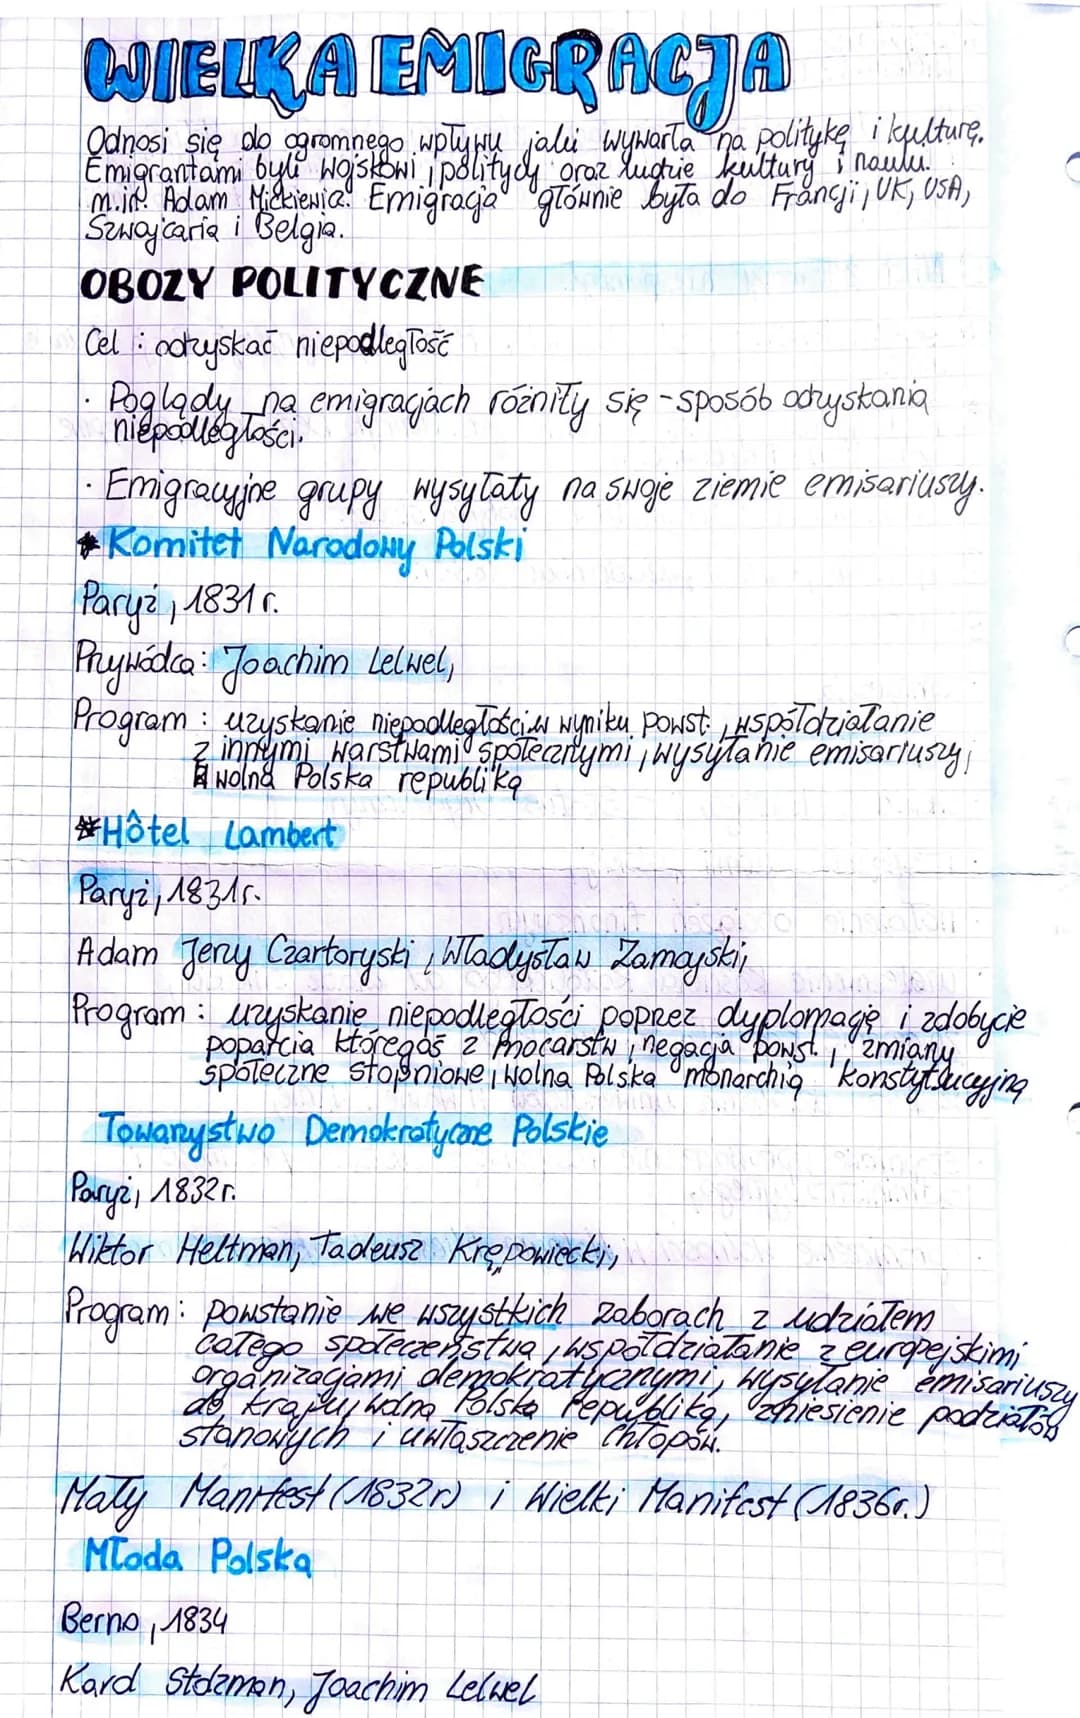 WIELKA EMIGRACJA
Odnosi się do ogromnego wpływu jaki wywarła na politykę i kulturę.
Emigrantami byli wojskowi, politycy oraz ludzie kultury i nauki.
m.in. Adam Mickiewicz. Emigracja głównie była do Francji, UK, USA,
Szwajcaria i Belgia.
OBOZY POLITYCZNE
Cel : odzyskać niepodległość
· Poglądy na emigracjach różniły się - sposób odzyskania
niepodległości.
· Emigracyjne grupy wysyłały na swoje ziemie emisariuszy.
* Komitet Narodowy Polski
Paryż, 1831 r.
Przywódca: Joachim Lelwel,
Program : uzyskanie niepodległości w wyniku powst., współdziałanie
z innymi warstwami społecznymi, wysyłanie emisariuszy,
wolna Polska republiką
* Hôtel Lambert
Paryż, 1831 r.
Adam Jerzy Czartoryski, Władysław Zamoyski,
Program : uzyskanie niepodległości poprzez dyplomację i zdobycie
poparcia któregoś z mocarstw, negacja powst., zmiany
społeczne stopniowe, wolna Polska monarchią konstytucyjną
Towarzystwo Demokratyczne Polskie
Paryż, 1832 r.
Wiktor Heltman, Tadeusz Krępowiecki,
Program : powstanie we wszystkich zaborach z udziałem
całego społeczeństwa, współdziałanie z europejskimi
organizacjami demokratycznymi, wysyłanie emisariuszy
do kraju, wolna Polska republiką, zniesienie podziałów
stanowych i uwłaszczenie chłopów.
Mały Manifest (1832r) i Wielki Manifest (1836r.)
Młoda Polska
Berno, 1834
Karol Stolzman, Joachim Lelwel